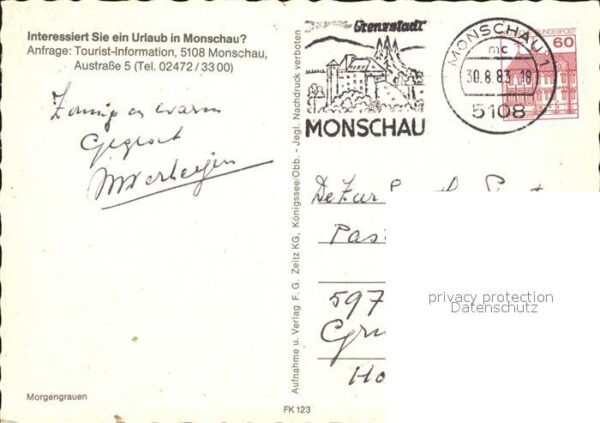 Interessiert Sie ein Urlaub in Monschau?
Anfrage: Tourist-Information, 5108 Monschau,
Austraße 5 (Tel. 02472/3300)
Zonnig en warm
Gegroet
Morgengrauen
Aufnahme u. Verlag F. G. Zeitz KG, Königssee/Obb. - Jegl. Nachdruck verboten
FK 123
Grenzstadt
MONSCHAU
MONSCHAU 1
mc
30.8.83.18
5108
BUNDESPOST
60
De
Pas
597
Gru
Ho
privacy protection
Datenschutz